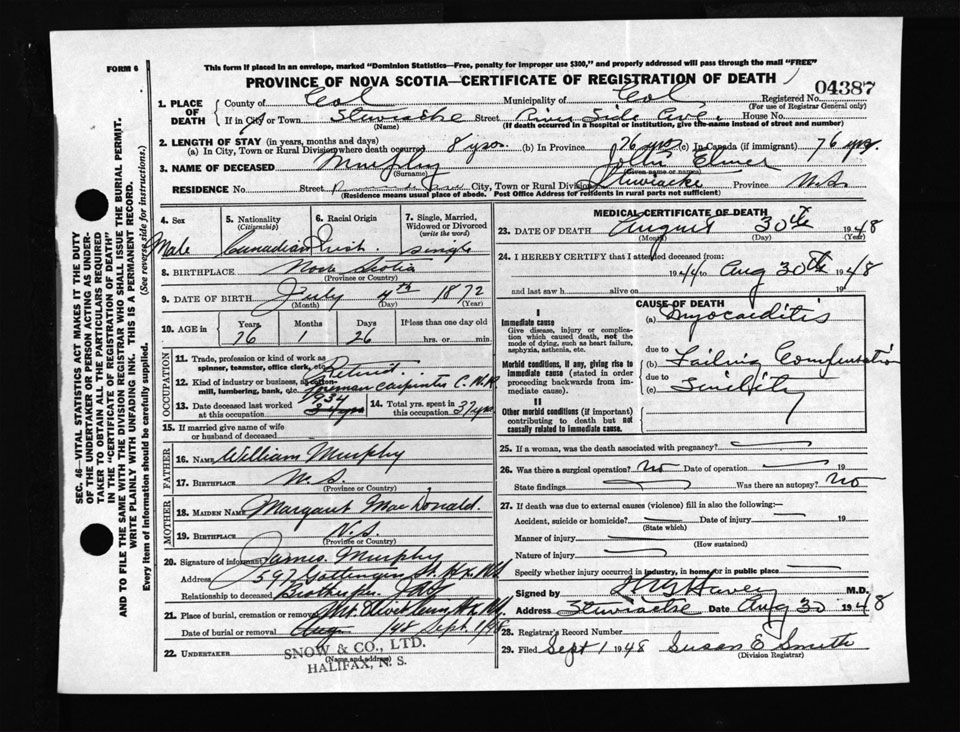 FORM 6
This form if placed in an envelope, marked "Dominion Statistics—Free, penalty for improper use $300," and properly addressed will pass through the mail "FREE"
PROVINCE OF NOVA SCOTIA—CERTIFICATE OF REGISTRATION OF DEATH
04387
1. PLACE OF DEATH
County of Col Municipality of Col Registered No.
(For use of Registrar General only)
If in City or Town Stewiacke Street River Side Ave. House No.
(Name) (If death occurred in a hospital or institution, give the name instead of street and number)
2. LENGTH OF STAY (in years, months and days)
(a) In City, Town or Rural Division where death occurred 8 yrs. (b) In Province 76 yrs (c) In Canada (if immigrant) 76 yrs.
3. NAME OF DECEASED Murphy Elmer
(Surname) (Given name or names)
RESIDENCE No. Street City, Town or Rural Division Stewiacke Province N.S.
(Residence means usual place of abode. Post Office Address for residents in rural parts not sufficient)
4. Sex
Male
5. Nationality
(Citizenship)
Canadian
6. Racial Origin
Irish
7. Single, Married, Widowed or Divorced
(write the word)
Single
8. BIRTHPLACE Nova Scotia
(Province or Country)
9. DATE OF BIRTH July 4th 1872
(Month) (Day) (Year)
10. AGE in Years Months Days If less than one day
76 1 26 hrs. or min.
OCCUPATION
11. Trade, profession or kind of work as spinner, teamster, office clerk, etc. Retired
12. Kind of industry or business, as cotton-mill, lumbering, bank, etc. Foreman Carpenter C.N.R.
13. Date deceased last worked at this occupation 1934
14. Total yrs. spent in this occupation 37 yrs
15. If married give name of wife or husband of deceased
FATHER
16. NAME William Murphy
17. BIRTHPLACE N.S.
(Province or Country)
MOTHER
18. MAIDEN NAME Margaret MacDonald.
19. BIRTHPLACE N.S.
(Province or Country)
20. Signature of informant James Murphy
Address 597 Gottingen St. Hx. N.S.
Relationship to deceased Brother
21. Place of burial, cremation or removal Mt. Olivet Cem. Hx. N.S.
Date of burial or removal Sept. 1/48
22. UNDERTAKER SNOW & CO., LTD.
(Name and address)
HALIFAX, N. S.
MEDICAL CERTIFICATE OF DEATH
23. DATE OF DEATH August 30th 1948
(Month) (Day) (Year)
24. I HEREBY CERTIFY that I attended deceased from
1944 to Aug 30th 1948
and last saw h alive on 194
CAUSE OF DEATH
I
Immediate cause
Give disease, injury or complication which caused death, not the mode of dying, such as heart failure, asphyxia, asthenia, etc.
(a) Myocarditis
due to
Morbid conditions, if any, giving rise to immediate cause (stated in order proceeding backwards from immediate cause).
(b) Failing Compensation
due to
(c) Senility
II
Other morbid conditions (if important) contributing to death but not causally related to immediate cause.
25. If a woman, was the death associated with pregnancy?
26. Was there a surgical operation? No Date of operation 19
State findings Was there an autopsy? No
27. If death was due to external causes (violence) fill in also the following:—
Accident, suicide or homicide? Date of injury 19
(State which)
Manner of injury
(How sustained)
Nature of injury
Specify whether injury occurred in industry, in home or in public place
Signed by M.D.
Address Stewiacke Date Aug 30 1948
28. Registrar's Record Number
29. Files Sept 1 1948 Susan E Smith
(Division Registrar)
SEC. 46—VITAL STATISTICS ACT MAKES IT THE DUTY
OF THE UNDERTAKER OR PERSON ACTING AS UNDER-
TAKER TO OBTAIN ALL THE PARTICULARS REQUIRED
IN THE "CERTIFICATE OF REGISTRATION OF DEATH"
AND TO FILE THE SAME WITH THE DIVISION REGISTRAR WHO SHALL ISSUE THE BURIAL PERMIT.
WRITE PLAINLY WITH UNFADING INK. THIS IS A PERMANENT RECORD.
Every item of Information should be carefully supplied. (See reverse side for instructions.)